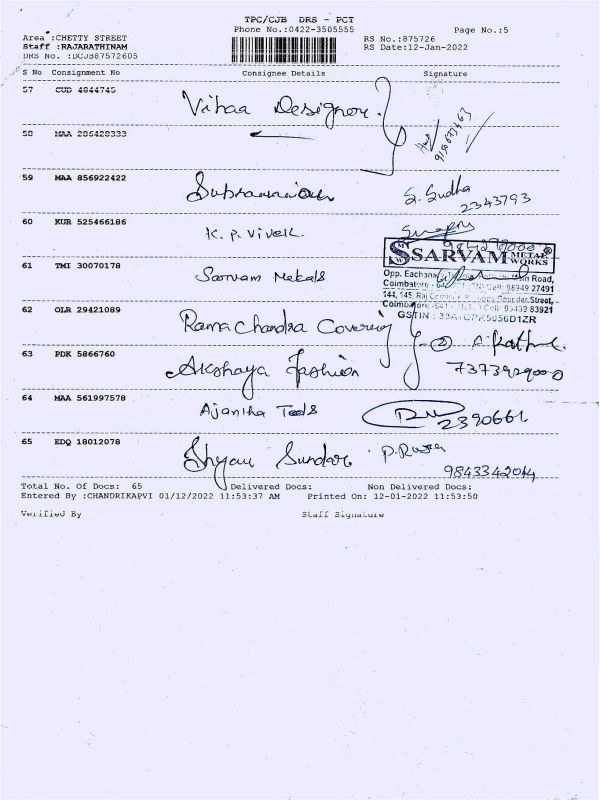 TPC/CJB DRS - PCT
Phone No.:0422-3505555
Page No.:5
Area :CHETTY STREET
RS No.:875726
Staff :RAJARATHINAM
RS Date:12-Jan-2022
DRS No. :DCJB87572605
S No Consignment No Consignee Details Signature
57 CUD 4844745 Vihaa Designer
58 MAA 286428333
59 MAA 856922422 S. Sudha
2343793
60 KUR 525466186 K. P. Vivek
61 TMI 30070178 Sarvam Metals
SSARVAM METAL WORKS ®
Opp. Eachana Road,
Cell: 98949 27491
144, 145, Raj Street,
Cell: 95433 83921
GSTIN :
62 OLR 29421089 Rama Chandra Covering
63 PDK 5866760 Akshaya Fashion
7373929000
64 MAA 561997578 Ajantha Tools
2390661
65 EDQ 18012078 Shyam Sundar
9843342014
Total No. Of Docs: 65 Delivered Docs: Non Delivered Docs:
Entered By :CHANDRIKAPVI 01/12/2022 11:53:37 AM Printed On: 12-01-2022 11:53:50
Verified By Staff Signature